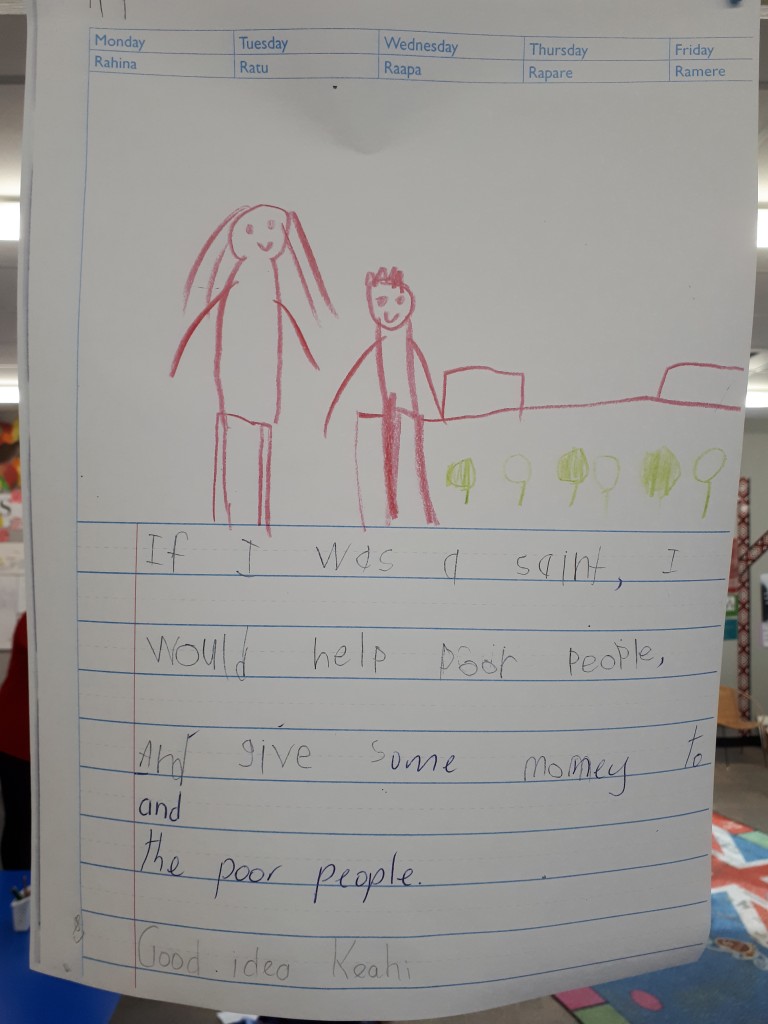 Monday Tuesday Wednesday Thursday Friday
Rahina Ratu Raapa Rapare Ramere
If I was a saint, I
would help poor people,
And give some momey to
and
the poor people.
Good idea Keahi